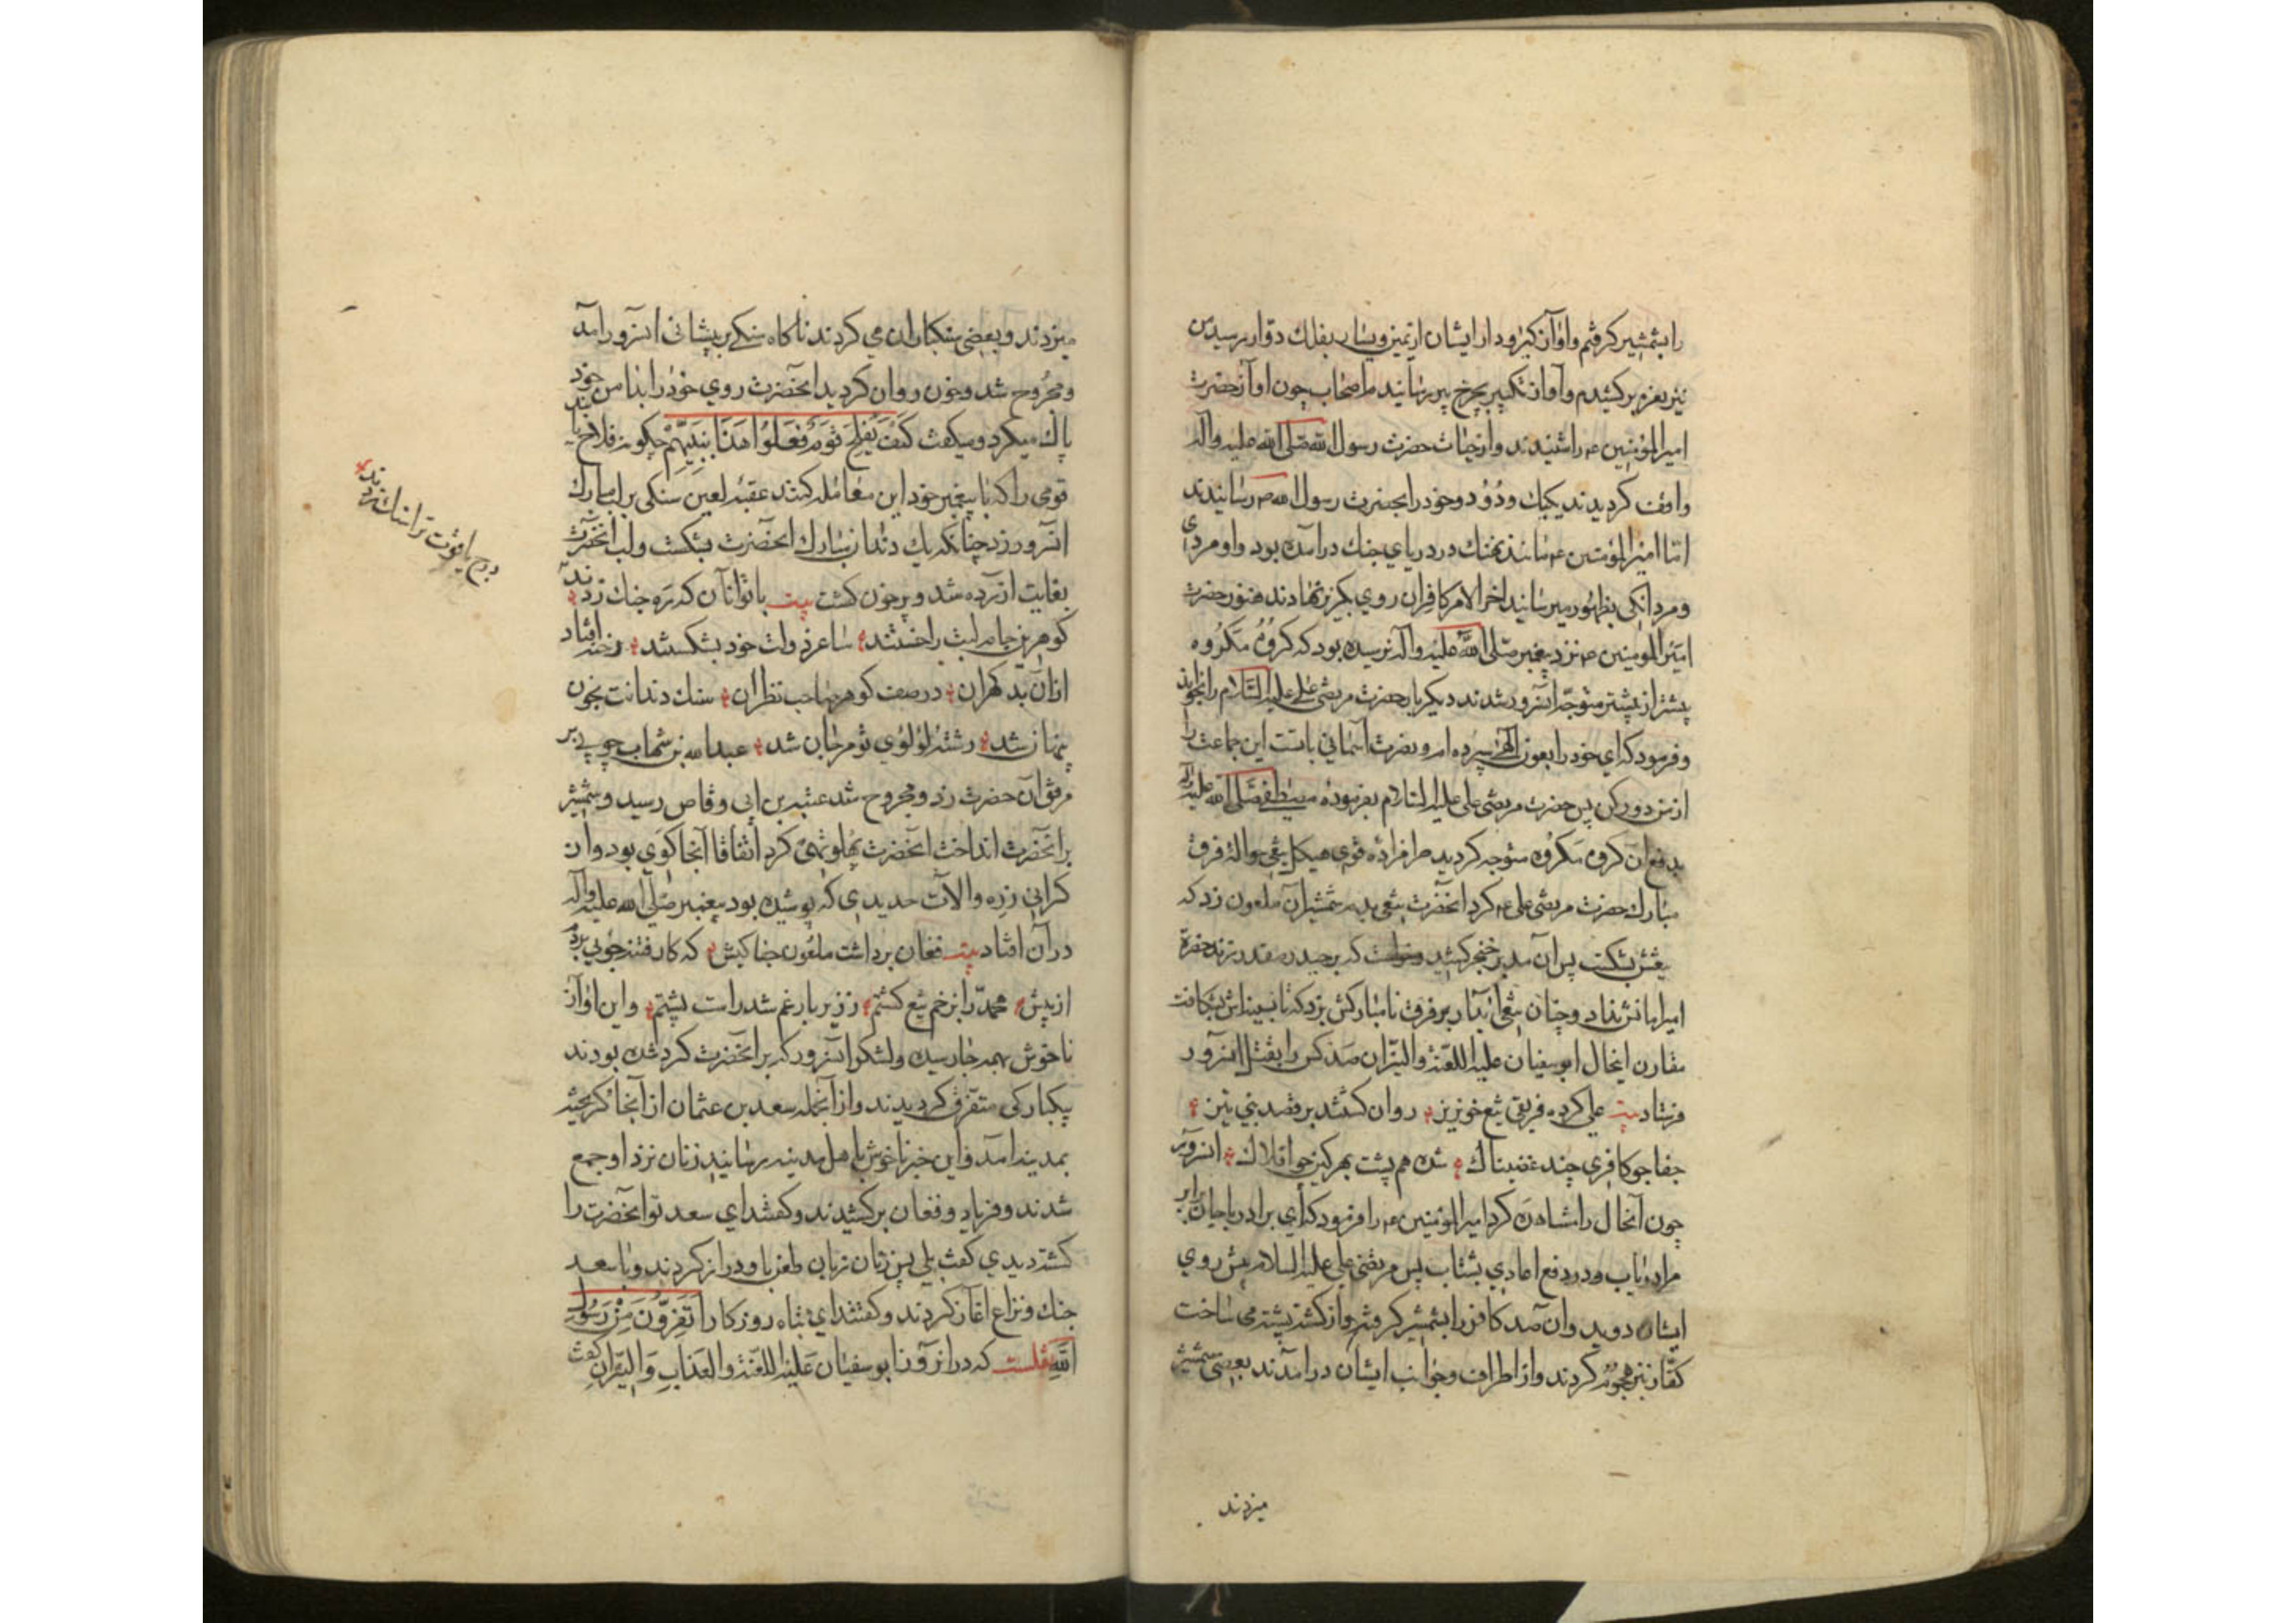 را بشمشیر کرفتم و اواز کیرودار ایشان از یمین و یسار بفلک دوار رسید من
نیز نعره برکشیدم و آواز تکبیر بچرخ پیر رسانیدم اصحاب چون اواز حضرت
امیرالمؤمنین ع را شنیدند و از حیات حضرت رسول الله صلی الله علیه واله
واقف کردیدند یکیک و دو دو خود را بحضرت رسول الله ص رسانیدند
اما امیرالمؤمنین ع مانند نهنک در دریای جنک درآمده بود و او مردی
و مردانکی بظهور میرسانید اخر الامر کافران روی بکریز نهادند هنوز حضرت
امیرالمومنین ع نزد پیغمبر صلی الله علیه واله نرسیده بود که کروه مکروه
پیشتر از پیشتر متوجه آنسرور شدند دیکر بار حضرت مرتضی علی علیه السلام را
و فرمود که ای خود را بعون الهی سپرده امر و نصرت آسمانی باتست این جماعت را
از من دور کن پس حضرت مرتضی علی علیه السلام بفرموده مصطفی صلی الله علیه واله
بدفع آن کروه مکروه متوجه کردید قوی هیکل تیغی حواله فرق
مبارک حضرت مرتضی علی ع کرد انحضرت شمشیر آن ملعون زد که
تیغش بشکست پس آن مدبر خنجر کشید
امیر امانش نداد و چنان تیغی آبدار بر فرق نامبارکش بزد که تا سینه اش بشکافت
مقارن اینحال ابوسفیان علیه اللعنة والنیران صد کس را بقتل انسرور
فرستاد بیت علی کرده فریق تیغ خونریز روان کشتند بر قصد نبی نیز
جفاجو کافری چند غضبناک شده هم پشت بهر کین چو افلاک انسرور
چون آنحال را مشاهده کرد امیرالمؤمنین ع را فرمود که ای برادر با جان برابر
مرا دریاب و در دفع اعادی بشتاب پس مرتضی علی علیه السلام پیش روی
ایشان دوید و ان صد کافر را بشمشیر کرفته و از کشته پشته می ساخت
کفار نیز هجوم کردند و از اطراف و جوانب ایشان درآمدند بعضی شمشیر
میزدند
میزدند و بعضی سنکباران می کردند ناکاه سنکی بر پیشانی انسرور امد
و مجروح شد و خون روان کردید انحضرت روی خود را بدامن خود
پاک میکرد و میکفت کَیفَ یُفلِحُ قَومٌ فَعَلُوا هَذَا بِنَبِیِّهِم چکونه فلاح یابند
قومی را که با پیغمبر خود این معامله کنند عقبه لعین سنکی بر لب مبارک
انسرور زد چنانکه یک دندان مبارک انحضرت بشکست و لب انحضرت
بغایت آزرده شد و پر خون کشت بیت با تو آنان که ره جنک زدند
درج یاقوت ترا سنک زدند
کوهرین جام لبت را خستند ساغر دولت خود بشکستند رخنه افتاد
ازان بد کهران در صف کوهر صاحب نظران سنک دندانت بخون
پنهان شد رشته لؤلؤی تو مرجان شد عبدالله بن شهاب چوبی بر
مرفق آن حضرت زد و مجروح شد عتبه بن ابی وقاص رسید و شمشیر
بر انحضرت انداخت انحضرت پهلو تهی کرد اتفاقا آنجا کوی بود و ان
کرانی زره و الات حدیدی که پوشیده بود پیغمبر صلی الله علیه واله
در آن افتاد بیت فغان برداشت ملعون جفا کیش که کار فتنه جویی بردم
از پیش محمد را بزخم تیغ کشتم ز زیر بار غم شد راست پشتم و این اواز
ناخوش بهمه جا رسیده و لشکر انسرور که بر انحضرت کرد شده بودند
بیکبارکی متفرق کردیدند و از آنجمله سعد بن عثمان از آنجا کریخته
بمدینه امد و این خبر ناخوش باهل مدینه رسانید زنان نزد او جمع
شدند و فریاد و فغان برکشیدند و کفتند ای سعد تو انحضرت را
کشته دیدی کفت بلی پس زنان زبان طعن باو دراز کردند و با سعد
جنک و نزاع اغاز کردند و کفتند ای تباه روزکار اَتَفِرّونَ مِن رَسُولِ
الله نقلست که در انروز ابوسفیان علیه اللعنة والعذاب والنیران کفت